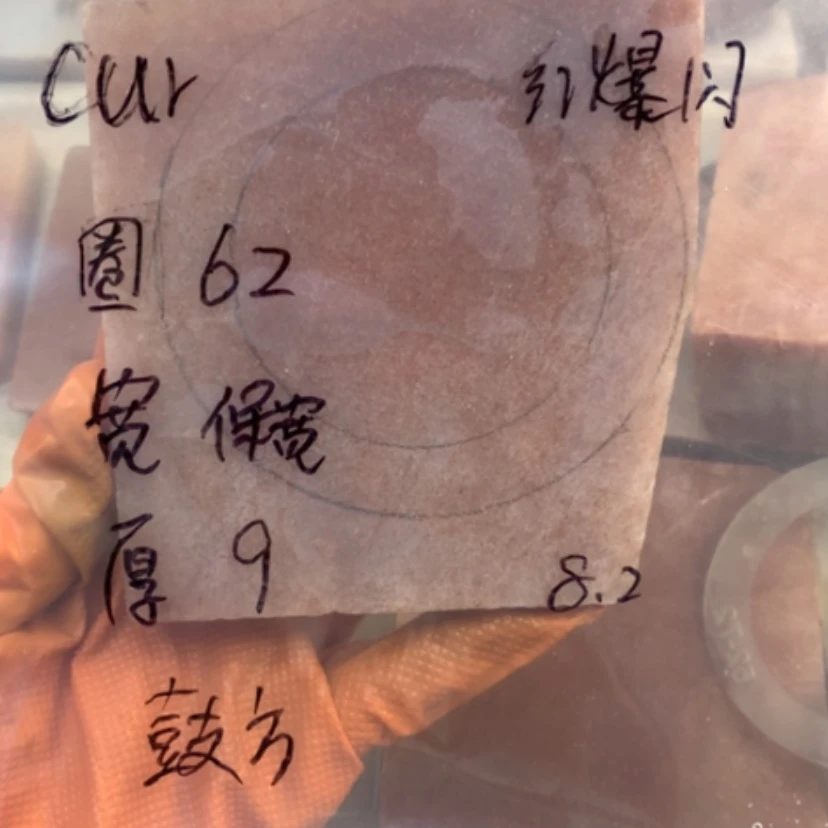 cur 引爆闪
圈 62
宽 保宽
厚 9 8.2
鼓方